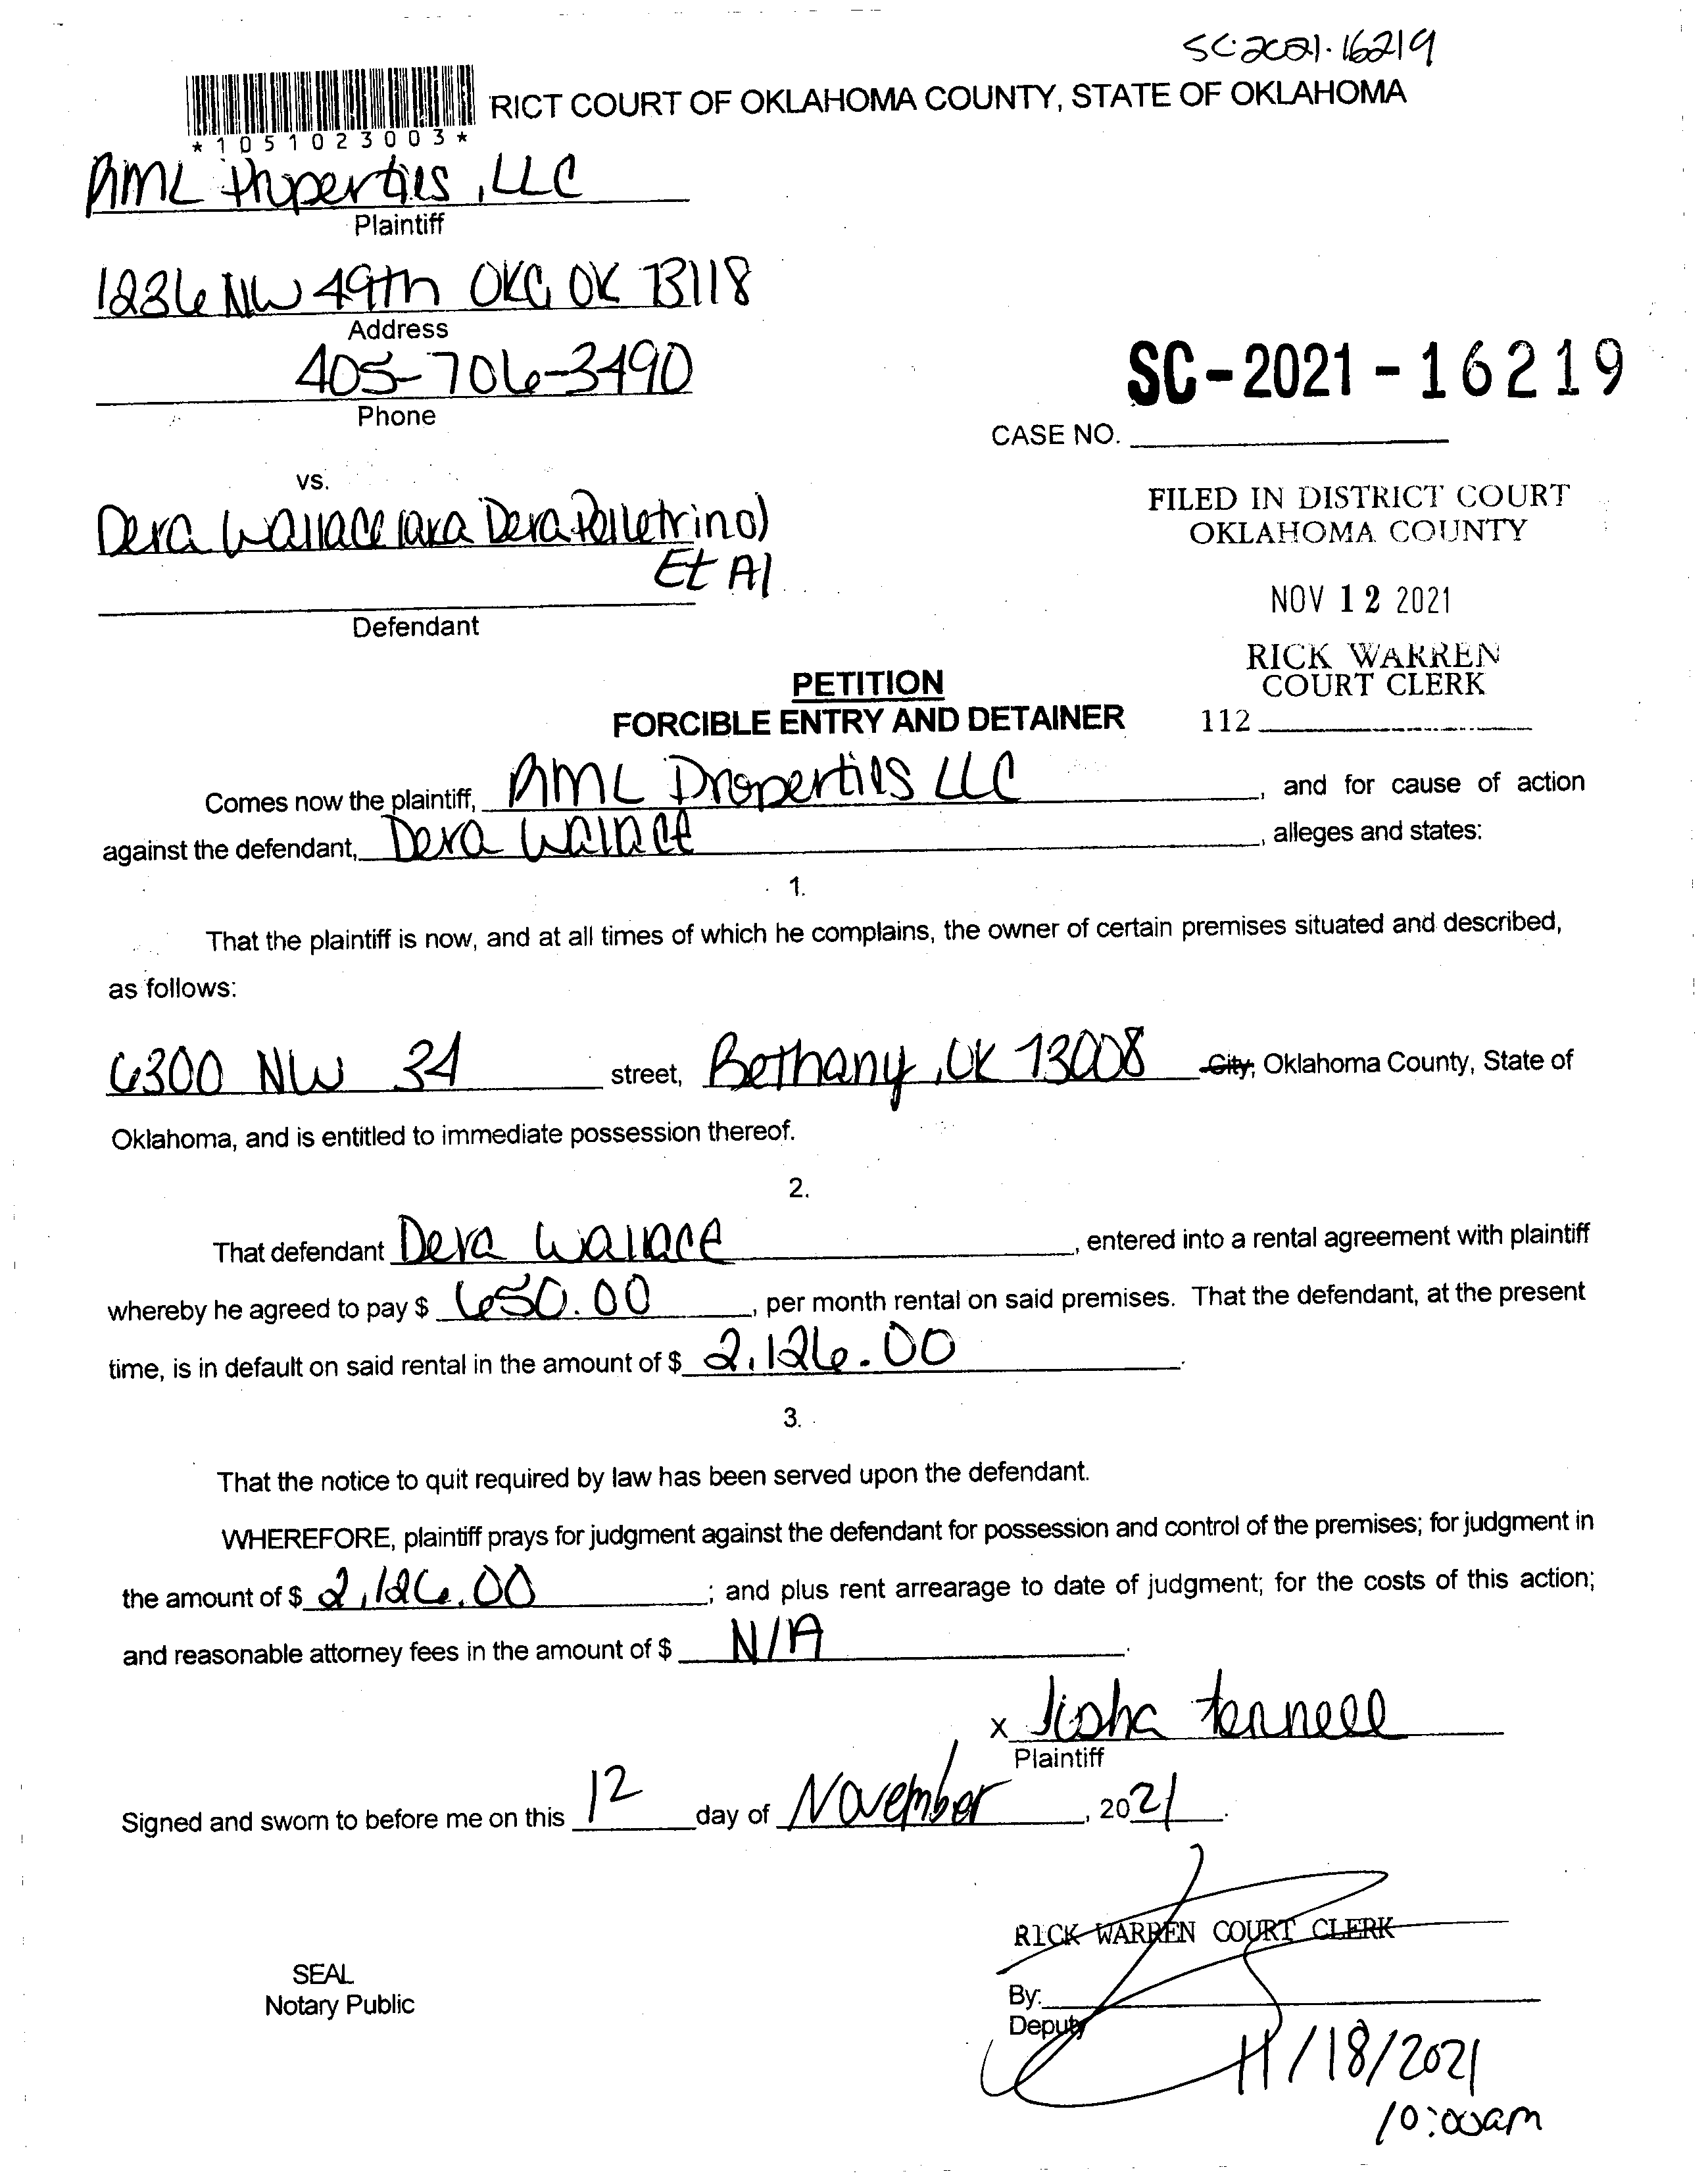 SC-2021-16219
RICT COURT OF OKLAHOMA COUNTY, STATE OF OKLAHOMA
*1051023003*
AML Properties, LLC
Plaintiff
1236 NW 49th OKC, OK 73118
Address
405-706-3490
Phone
SC-2021-16219
CASE NO.
vs.
Dera Wallace (aka Dera Pelletrino)
Et Al
Defendant
FILED IN DISTRICT COURT
OKLAHOMA COUNTY
NOV 12 2021
RICK WARREN
COURT CLERK
112
PETITION
FORCIBLE ENTRY AND DETAINER
Comes now the plaintiff, AML Properties LLC, and for cause of action
against the defendant, Dera Wallace, alleges and states:
1.
That the plaintiff is now, and at all times of which he complains, the owner of certain premises situated and described,
as follows:
6300 NW 34 street, Bethany, OK 73008 City, Oklahoma County, State of
Oklahoma, and is entitled to immediate possession thereof.
2.
That defendant Dera Wallace, entered into a rental agreement with plaintiff
whereby he agreed to pay $ 650.00, per month rental on said premises. That the defendant, at the present
time, is in default on said rental in the amount of $ 2,126.00.
3.
That the notice to quit required by law has been served upon the defendant.
WHEREFORE, plaintiff prays for judgment against the defendant for possession and control of the premises; for judgment in
the amount of $ 2,126.00; and plus rent arrearage to date of judgment; for the costs of this action;
and reasonable attorney fees in the amount of $ N/A.
x
Plaintiff
Signed and sworn to before me on this 12 day of November, 2021.
RICK WARREN COURT CLERK
SEAL
Notary Public
By:
Deputy
11/18/2021
10:00am